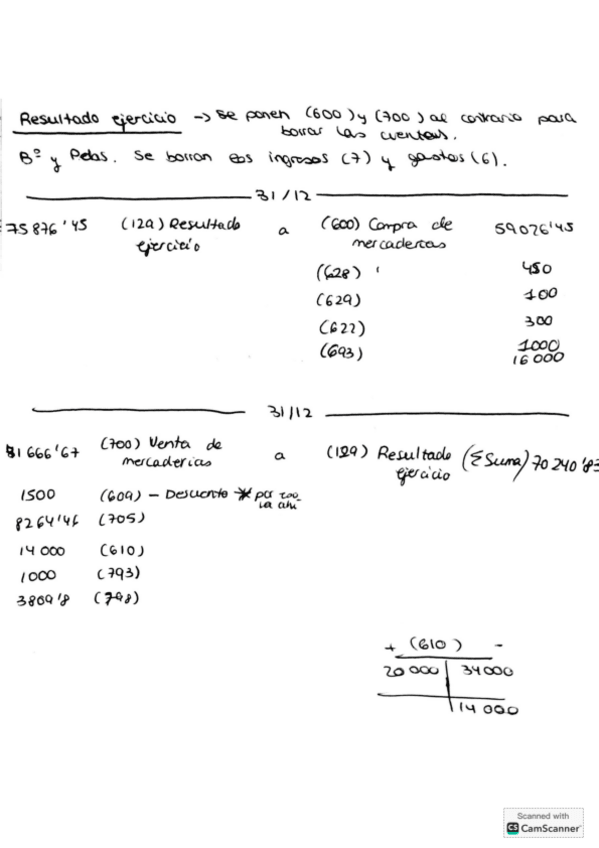 Resultado ejercicio → se ponen (600) y (700) al contrario para
borrar las cuentas.
Bº y Pdas. Se borran los ingresos (7) y gastos (6).
31/12
75 876'45 (129) Resultado a (600) Compra de 59026'45
ejercicio mercaderías
(628) 450
(629) 100
(622) 300
(693) 1000
16 000
31/12
(700) Venta de a (129) Resultado (Σ Suma) 70 240'93
mercaderías ejercicio
1500 (609) – Descuento * por
8264'46 (705)
14 000 (610)
1000 (793)
3809'8 (798)
+ (610) -
20 000 34 000
14 000
Scanned with
CS CamScanner